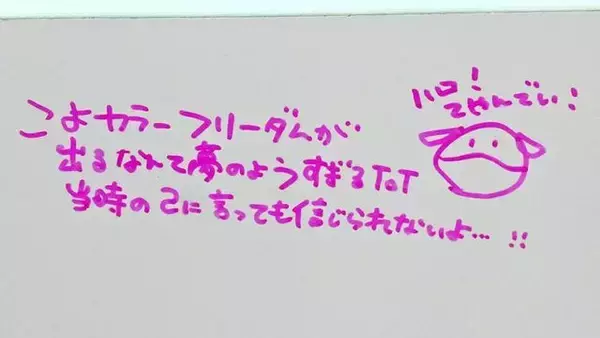 こよカラーフリーダムが
出るなんて夢のようすぎるTOT
当時の己に言っても信じられないよ… !!
ハロ!
てやんでい!